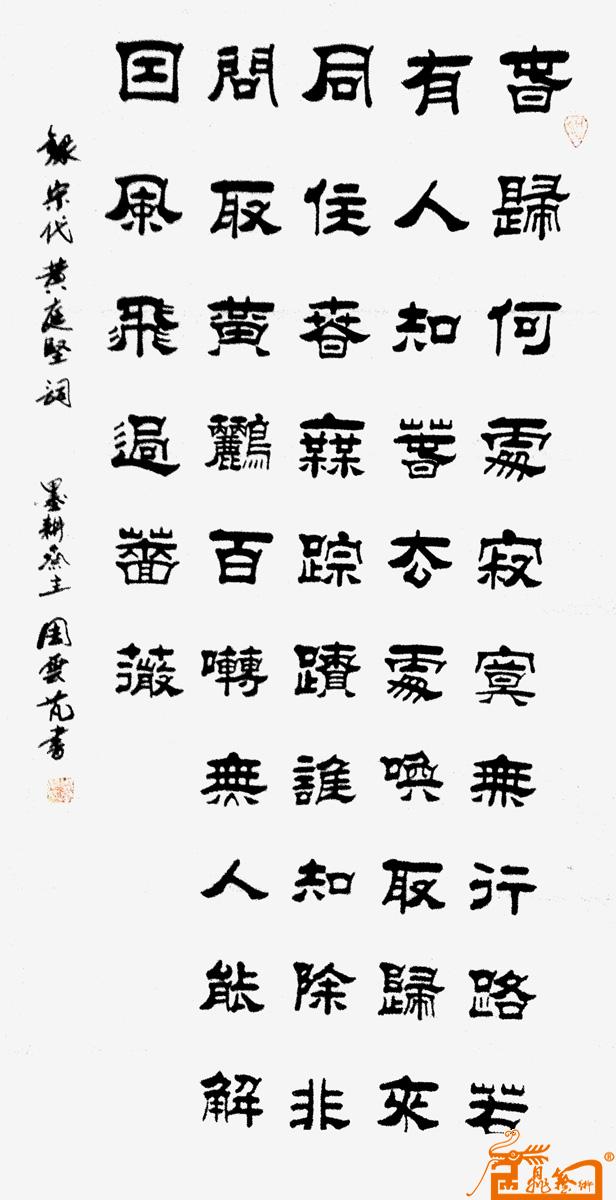 春歸何處寂寞無行路若
有人知春去處喚取歸來
同住春無踪蹟誰知除非
問取黃鸝百囀無人能解
因風飛過薔薇
錄宋代黄庭堅詞 墨耕齋主 周雲芃書